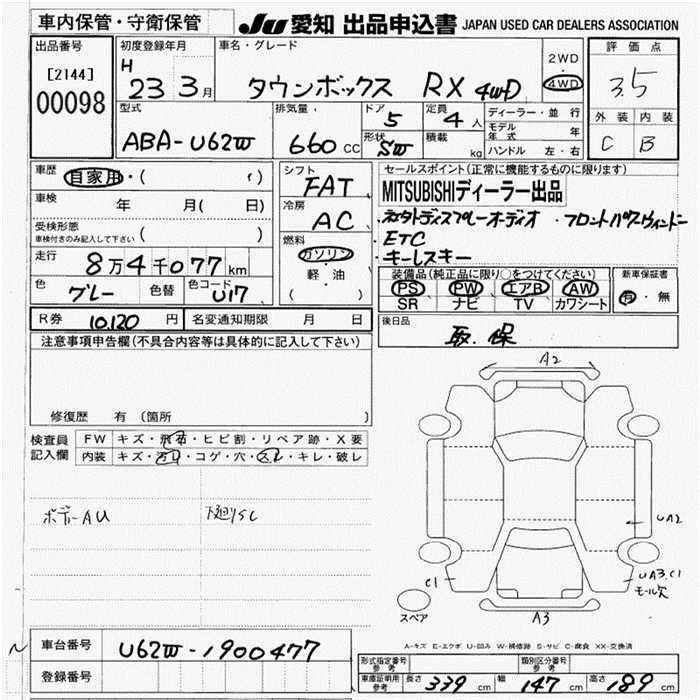 車内保管・守衛保管 JU 愛知 出品申込書 JAPAN USED CAR DEALERS ASSOCIATION
出品番号 初度登録年月 車名・グレード 評価点
[2144] H 23 3月 タウンボックス RX 4WD 2WD 4WD 3.5
00098
型式 排気量 ドア 5 定員 4人 ディーラー・並行 外装 内装
ABA-U62W 660 CC 形状 SW 積載 kg モデル年式 年 C B
ハンドル 左・右
車歴 自家用・( ) シフト FAT セールスポイント(正常に機能するものに限ります)
車検 年 月( 日) 冷房 AC MITSUBISHIディーラー出品
受検形態 車検付きのみ記入して下さい ( ) オーディオ ・フロントパワーウィンドー
燃料 ガソリン ETC
走行 8万4千077km 軽・油 キーレスキー
色 グレー 色替 色コード U17 ( ) 装備品(純正品に限り○をつけてください) 新車保証書
PS PW エアB AW 有・無
SR ナビ TV カワシート
R券 10,120 円 名変通知期限 月 日 後日品
取.保
注意事項申告欄(不具合内容等は具体的に記入して下さい)
修復歴 有 (箇所 )
検査員 FW キズ・飛石・ヒビ割・リペア跡・X要
記入欄 内装 キズ・汚れ・コゲ・穴・スレ・キレ・破レ
ボデーAU 下廻りSC
A2
UA2
C1
UA3.C1
モール欠
スペア
A3
A-キズ E-エクボ U-凹み W-補修跡 S-サビ C-腐食 XX-交換済
車台番号 U62W-1900477
登録番号
形式指定番号 参考 類別区分番号 参考
車庫証明用 参考 長さ 339 cm 幅 147 cm 高さ 189 cm